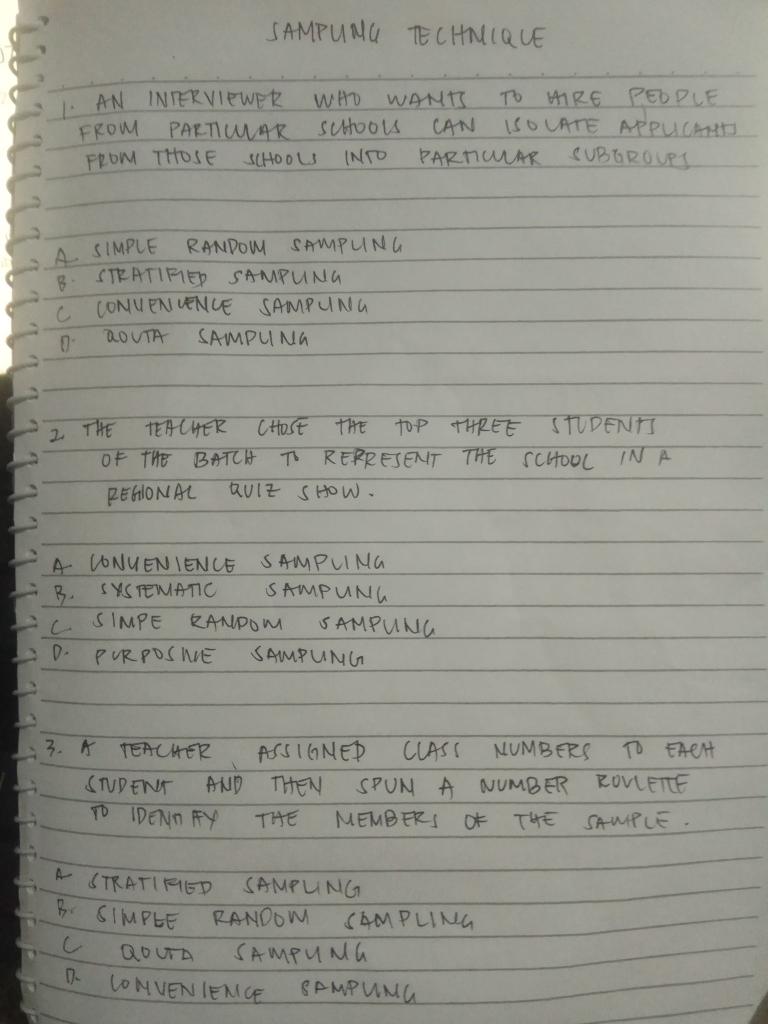 SAMPLING TECHNIQUE
1. AN INTERVIEWER WHO WANTS TO HIRE PEOPLE
FROM PARTICULAR SCHOOLS CAN ISOLATE APPLICANTS
FROM THOSE SCHOOLS INTO PARTICULAR SUBGROUPS
A. SIMPLE RANDOM SAMPLING
B. STRATIFIED SAMPLING
C CONVENIENCE SAMPLING
D. QOUTA SAMPLING
2. THE TEACHER CHOSE THE TOP THREE STUDENTS
OF THE BATCH TO REPRESENT THE SCHOOL IN A
REGIONAL QUIZ SHOW.
A. CONVENIENCE SAMPLING
B. SYSTEMATIC SAMPLING
C. SIMPE RANDOM SAMPLING
D. PURPOSIVE SAMPLING
3. A TEACHER ASSIGNED CLASS NUMBERS TO EACH
STUDENT AND THEN SPUN A NUMBER ROULETTE
TO IDENTIFY THE MEMBERS OF THE SAMPLE.
A STRATIFIED SAMPLING
B. SIMPLE RANDOM SAMPLING
C QOUTA SAMPLING
D. CONVENIENCE SAMPLING